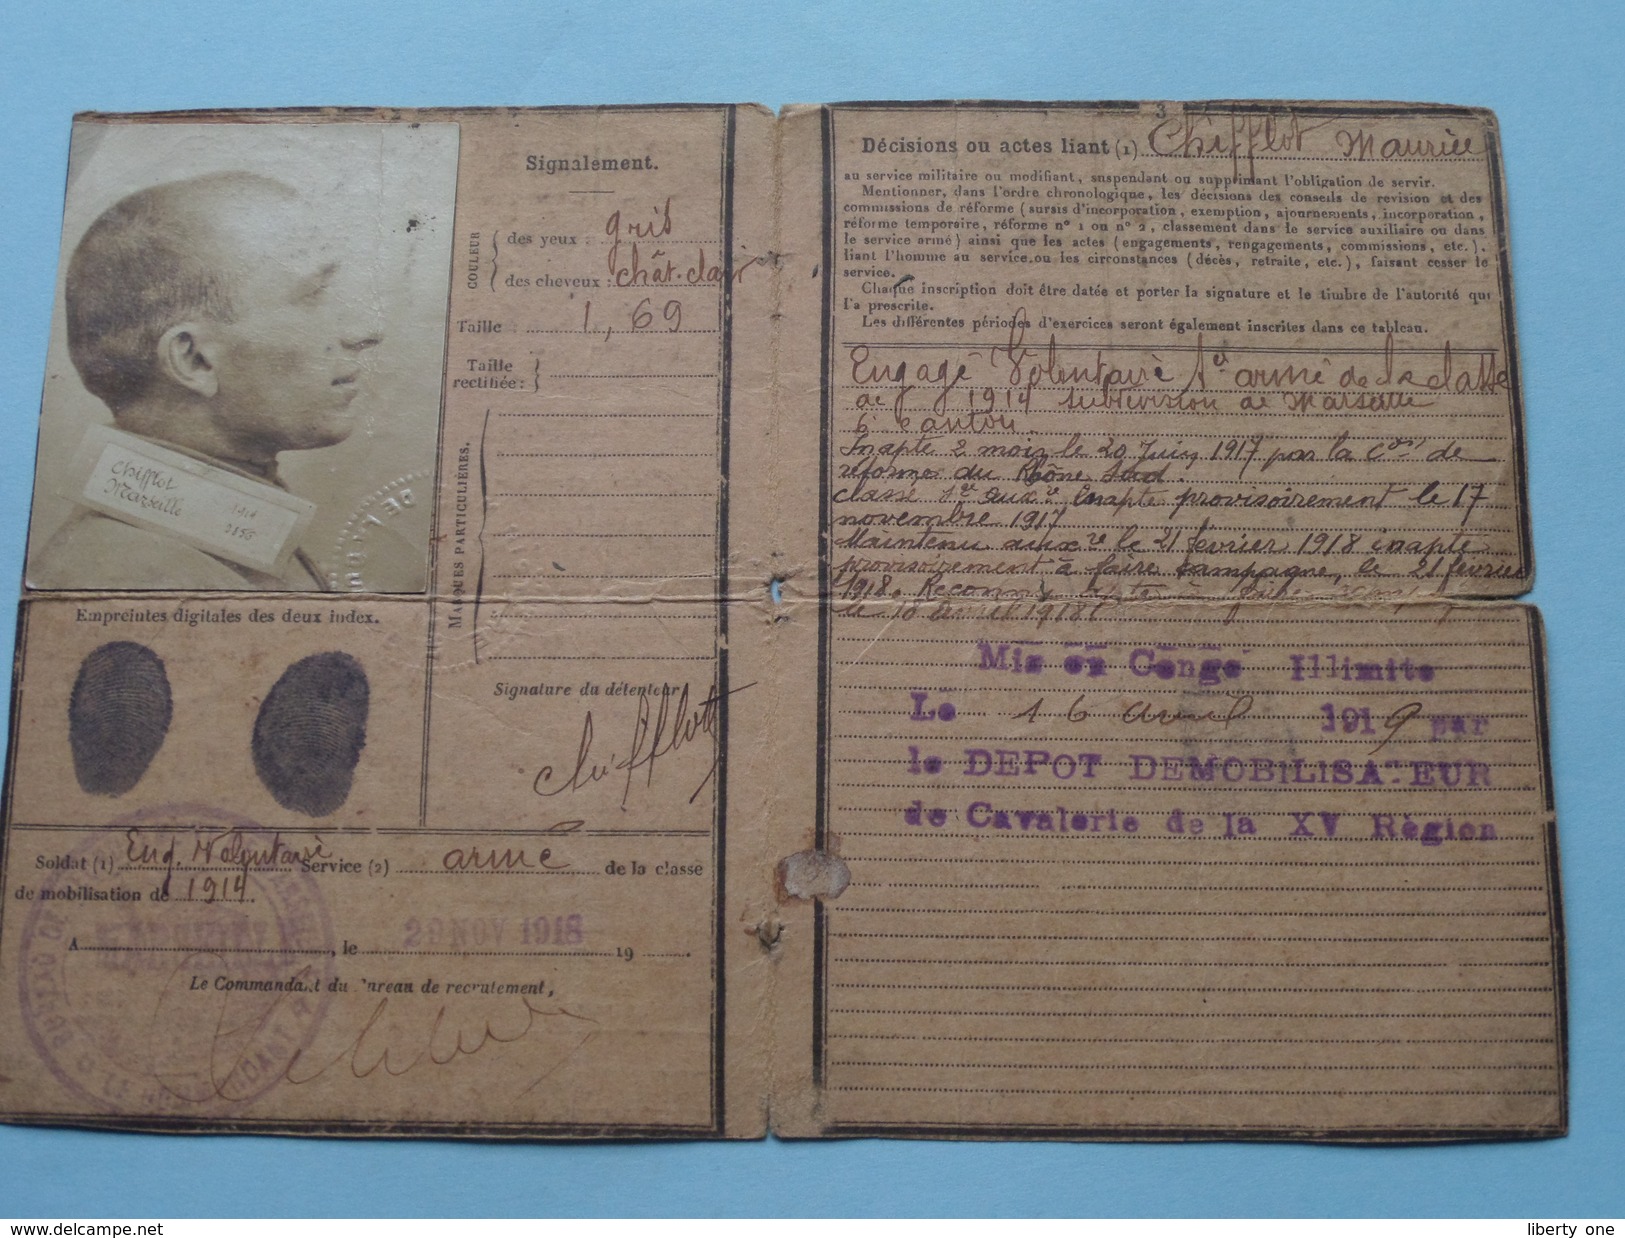 2
Signalement.
COULEUR
des yeux : gris
des cheveux : chât. clair
Taille : 1,69
Taille
rectifiée :
MARQUES PARTICULIÈRES.
Chifflot
Marseille 1914
DE
Empreintes digitales des deux index.
Signature du détenteur
Chifflot
Soldat (1) Eng. Volontaire Service (2) armé de la classe
de mobilisation de 1914.
A , le 29 NOV 1918 19
Le Commandant du Bureau de recrutement,
BUREAU DE
3
Décisions ou actes liant (1) Chifflot Maurice
au service militaire ou modifiant, suspendant ou supprimant l'obligation de servir.
Mentionner, dans l'ordre chronologique, les décisions des conseils de revision et des
commissions de réforme (sursis d'incorporation, exemption, ajournements, incorporation,
réforme temporaire, réforme n° 1 ou n° 2, classement dans le service auxiliaire ou dans
le service armé) ainsi que les actes (engagements, rengagements, commissions, etc.),
liant l'homme au service ou les circonstances (décès, retraite, etc.), faisant cesser le
service.
Chaque inscription doit être datée et porter la signature et le timbre de l'autorité qui
l'a prescrite.
Les différentes périodes d'exercices seront également inscrites dans ce tableau.
Engagé Volontaire armé de la classe
de 1914 subdivision de Marseille
6 Canton.
Inapte 2 mois le 20 Juin 1917 par la Con de
réformes du Rhône Sud.
classé Sce auxre inapte provisoirement le 17
novembre 1917
Maintenu auxre le 21 février 1918 inapte
provisoirement à faire campagne, le 21 février
1918. Reconnu apte
le 18 avril 1918
Mis en Congé Illimité
Le 16 avril 1919 par
le DEPOT DEMOBILISATEUR
de Cavalerie de la XV Région
liberty one